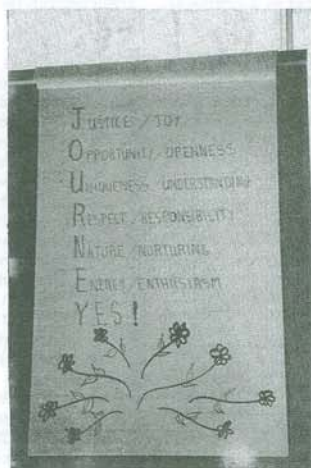 JUSTICE / JOY
OPPORTUNITY / OPENNESS
UNIQUENESS / UNDERSTANDING
RESPECT / RESPONSIBILITY
NATURE / NURTURING
ENERGY / ENTHUSIASM
YES!